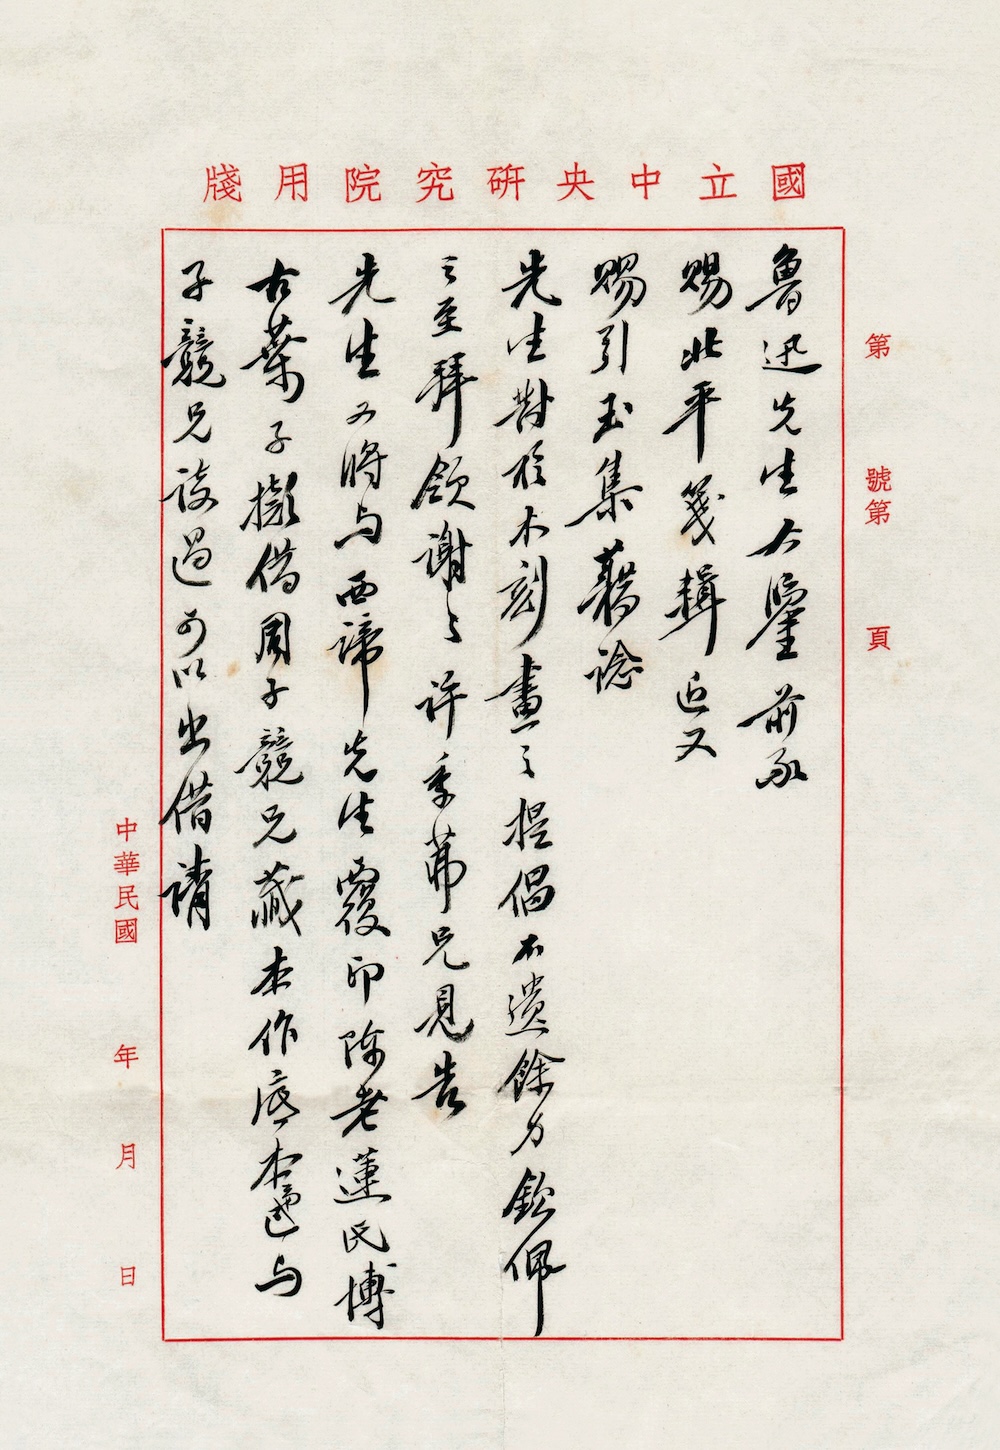 國立中央研究院用牋
第　號第　頁
魯迅先生大鑒前承
賜北平箋輯近又
賜引玉集藉諗
先生對於木刻畫之提倡不遺餘力欽佩
之至拜領謝謝許季茀兄見告
先生又將與西諦先生覆印陳老蓮氏博
古葉子擬借周子競兄藏本作底本適與
子競兄談過可以出借請
中華民國　年　月　日